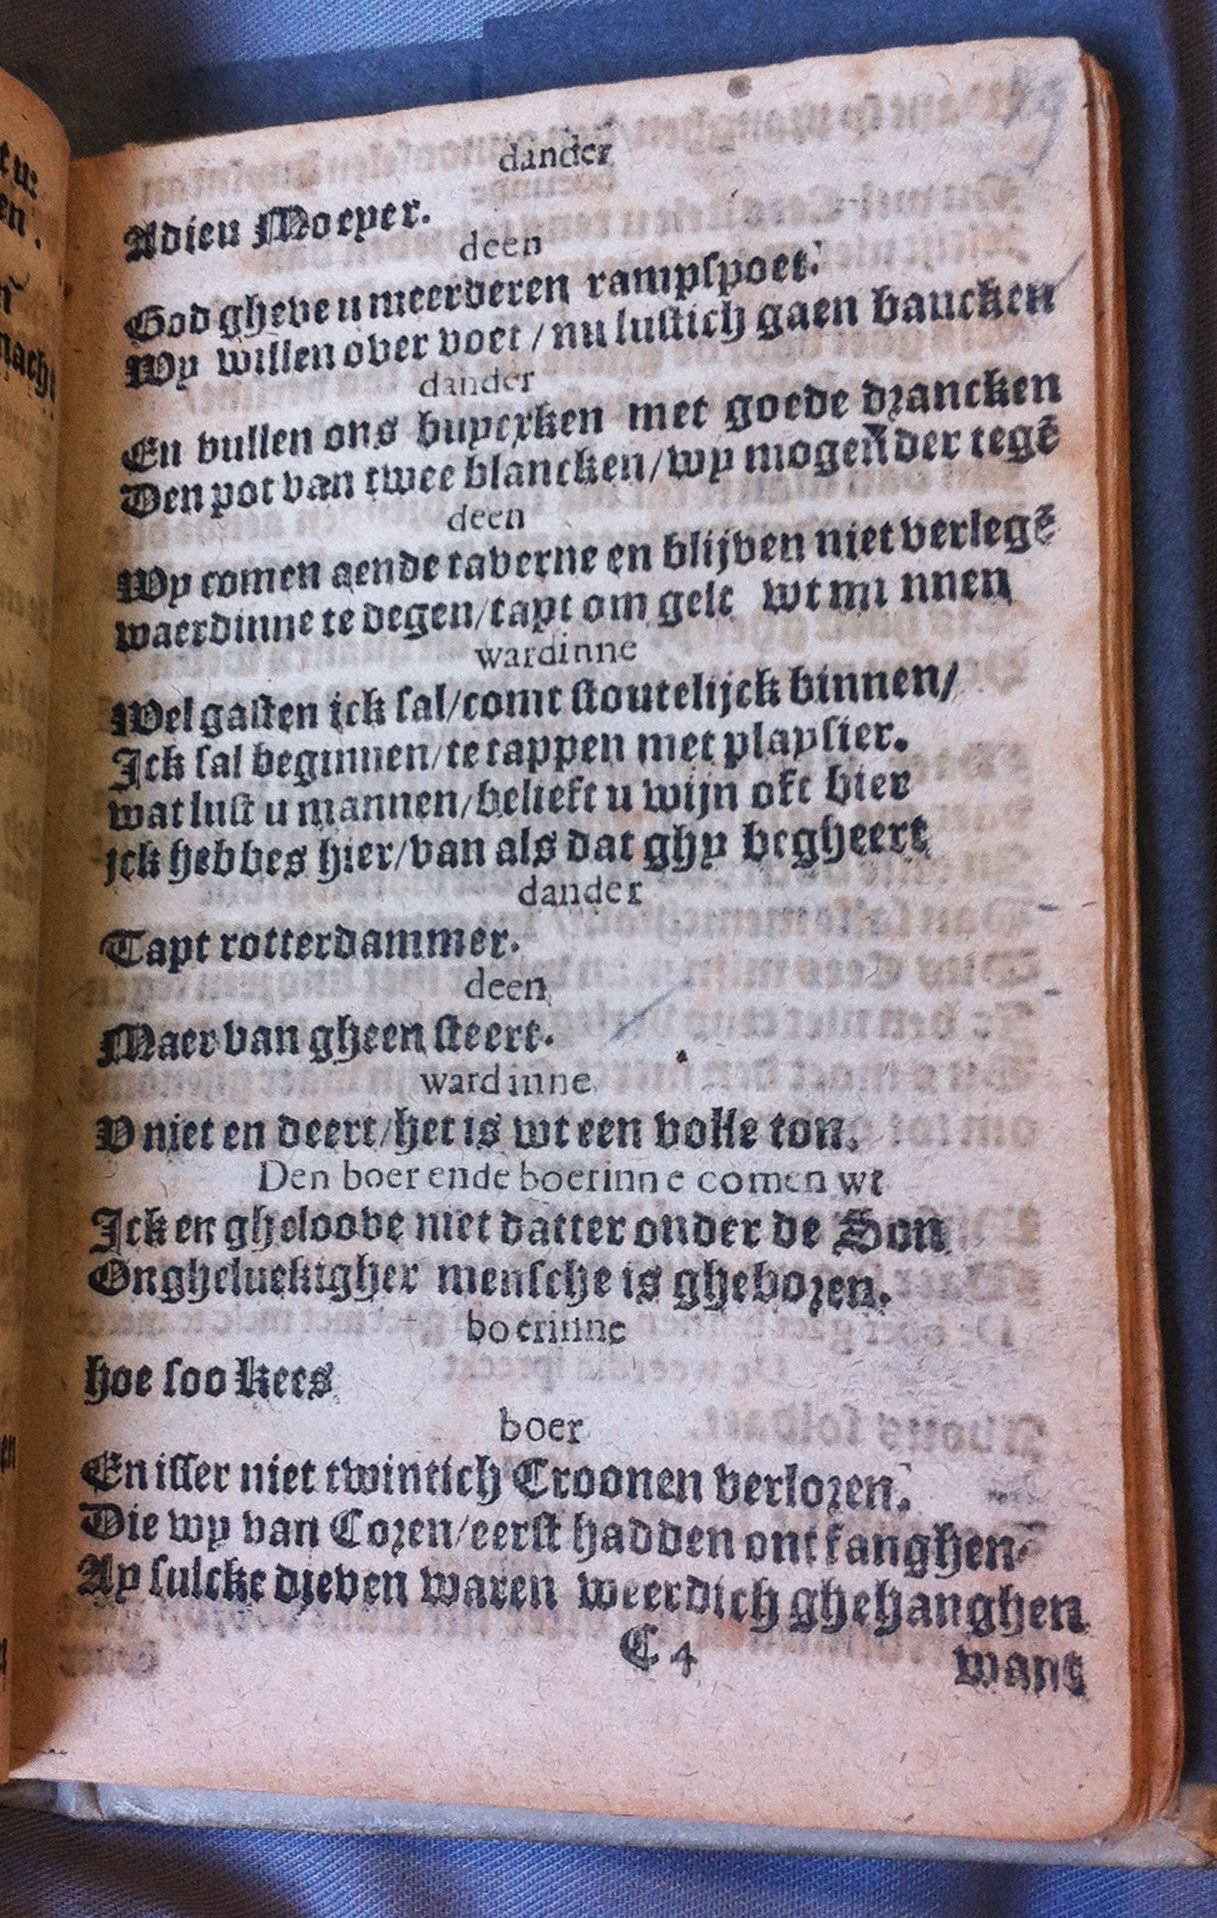 dander
Adieu Moeyer.
deen
God gheve u meerderen rampspoet.
Wy willen over voet / nu lustich gaen bancken
dander
En vullen ons buyexken met goede drancken
Den pot van twee blancken/wy mogeñ der tegē
deen
Wy comen aende taverne en blijven niet verlegē
waerdinne te degen/tapt om gelt wt mi nnen
wardinne
Wel gasten ick sal/comt stoutelijck binnen/
Ick sal beginnen/te tappen met playsier.
wat lust u mannen/belieft u wijn oft bier
ick hebbes hier/van als dat ghy begheert
dander
Tapt rotterdammer.
deen
Maer van gheen steert.
wardinne
V niet en deert/het is wt een volle ton.
Den boer ende boerinne comen wt
Ick en gheloove niet datter onder de Son
Ongheluckigher mensche is gheboren.
boerinne
hoe soo kees
boer
En isser niet twintich Croonen verloren.
Die wy van Coren/eerst hadden ontfanghen
Ay sulcke dieven waren weerdich ghehanghen
C 4
want